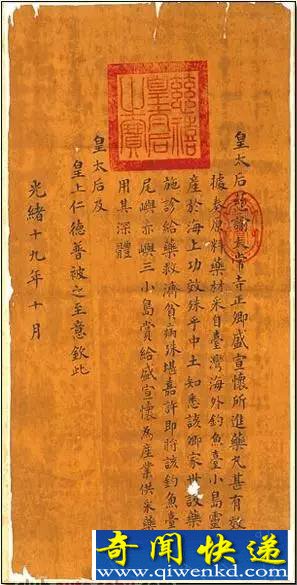 慈禧
皇太后
之寶
皇太后慈諭太常寺正卿盛宣懷所進藥丸甚有效
據奏原料藥材采自臺灣海外釣魚臺小島靈
產於海上功效殊乎中土知悉該卿家世設藥
施診給藥救濟貧病殊堪嘉許即將該釣魚臺
尾嶼赤嶼三小島賞給盛宣懷為產業供采藥
用其深體
皇太后及
皇上仁德普被之至意欽此
光緒十九年十月
奇闻快递
www.qiwenkd.com